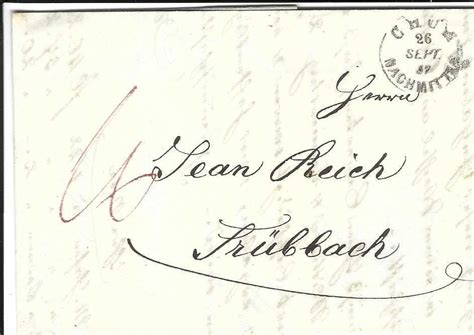 CHUR
26
SEPT.
47
NACHMITTAG
Herrn
Jean Reich
Trübbach